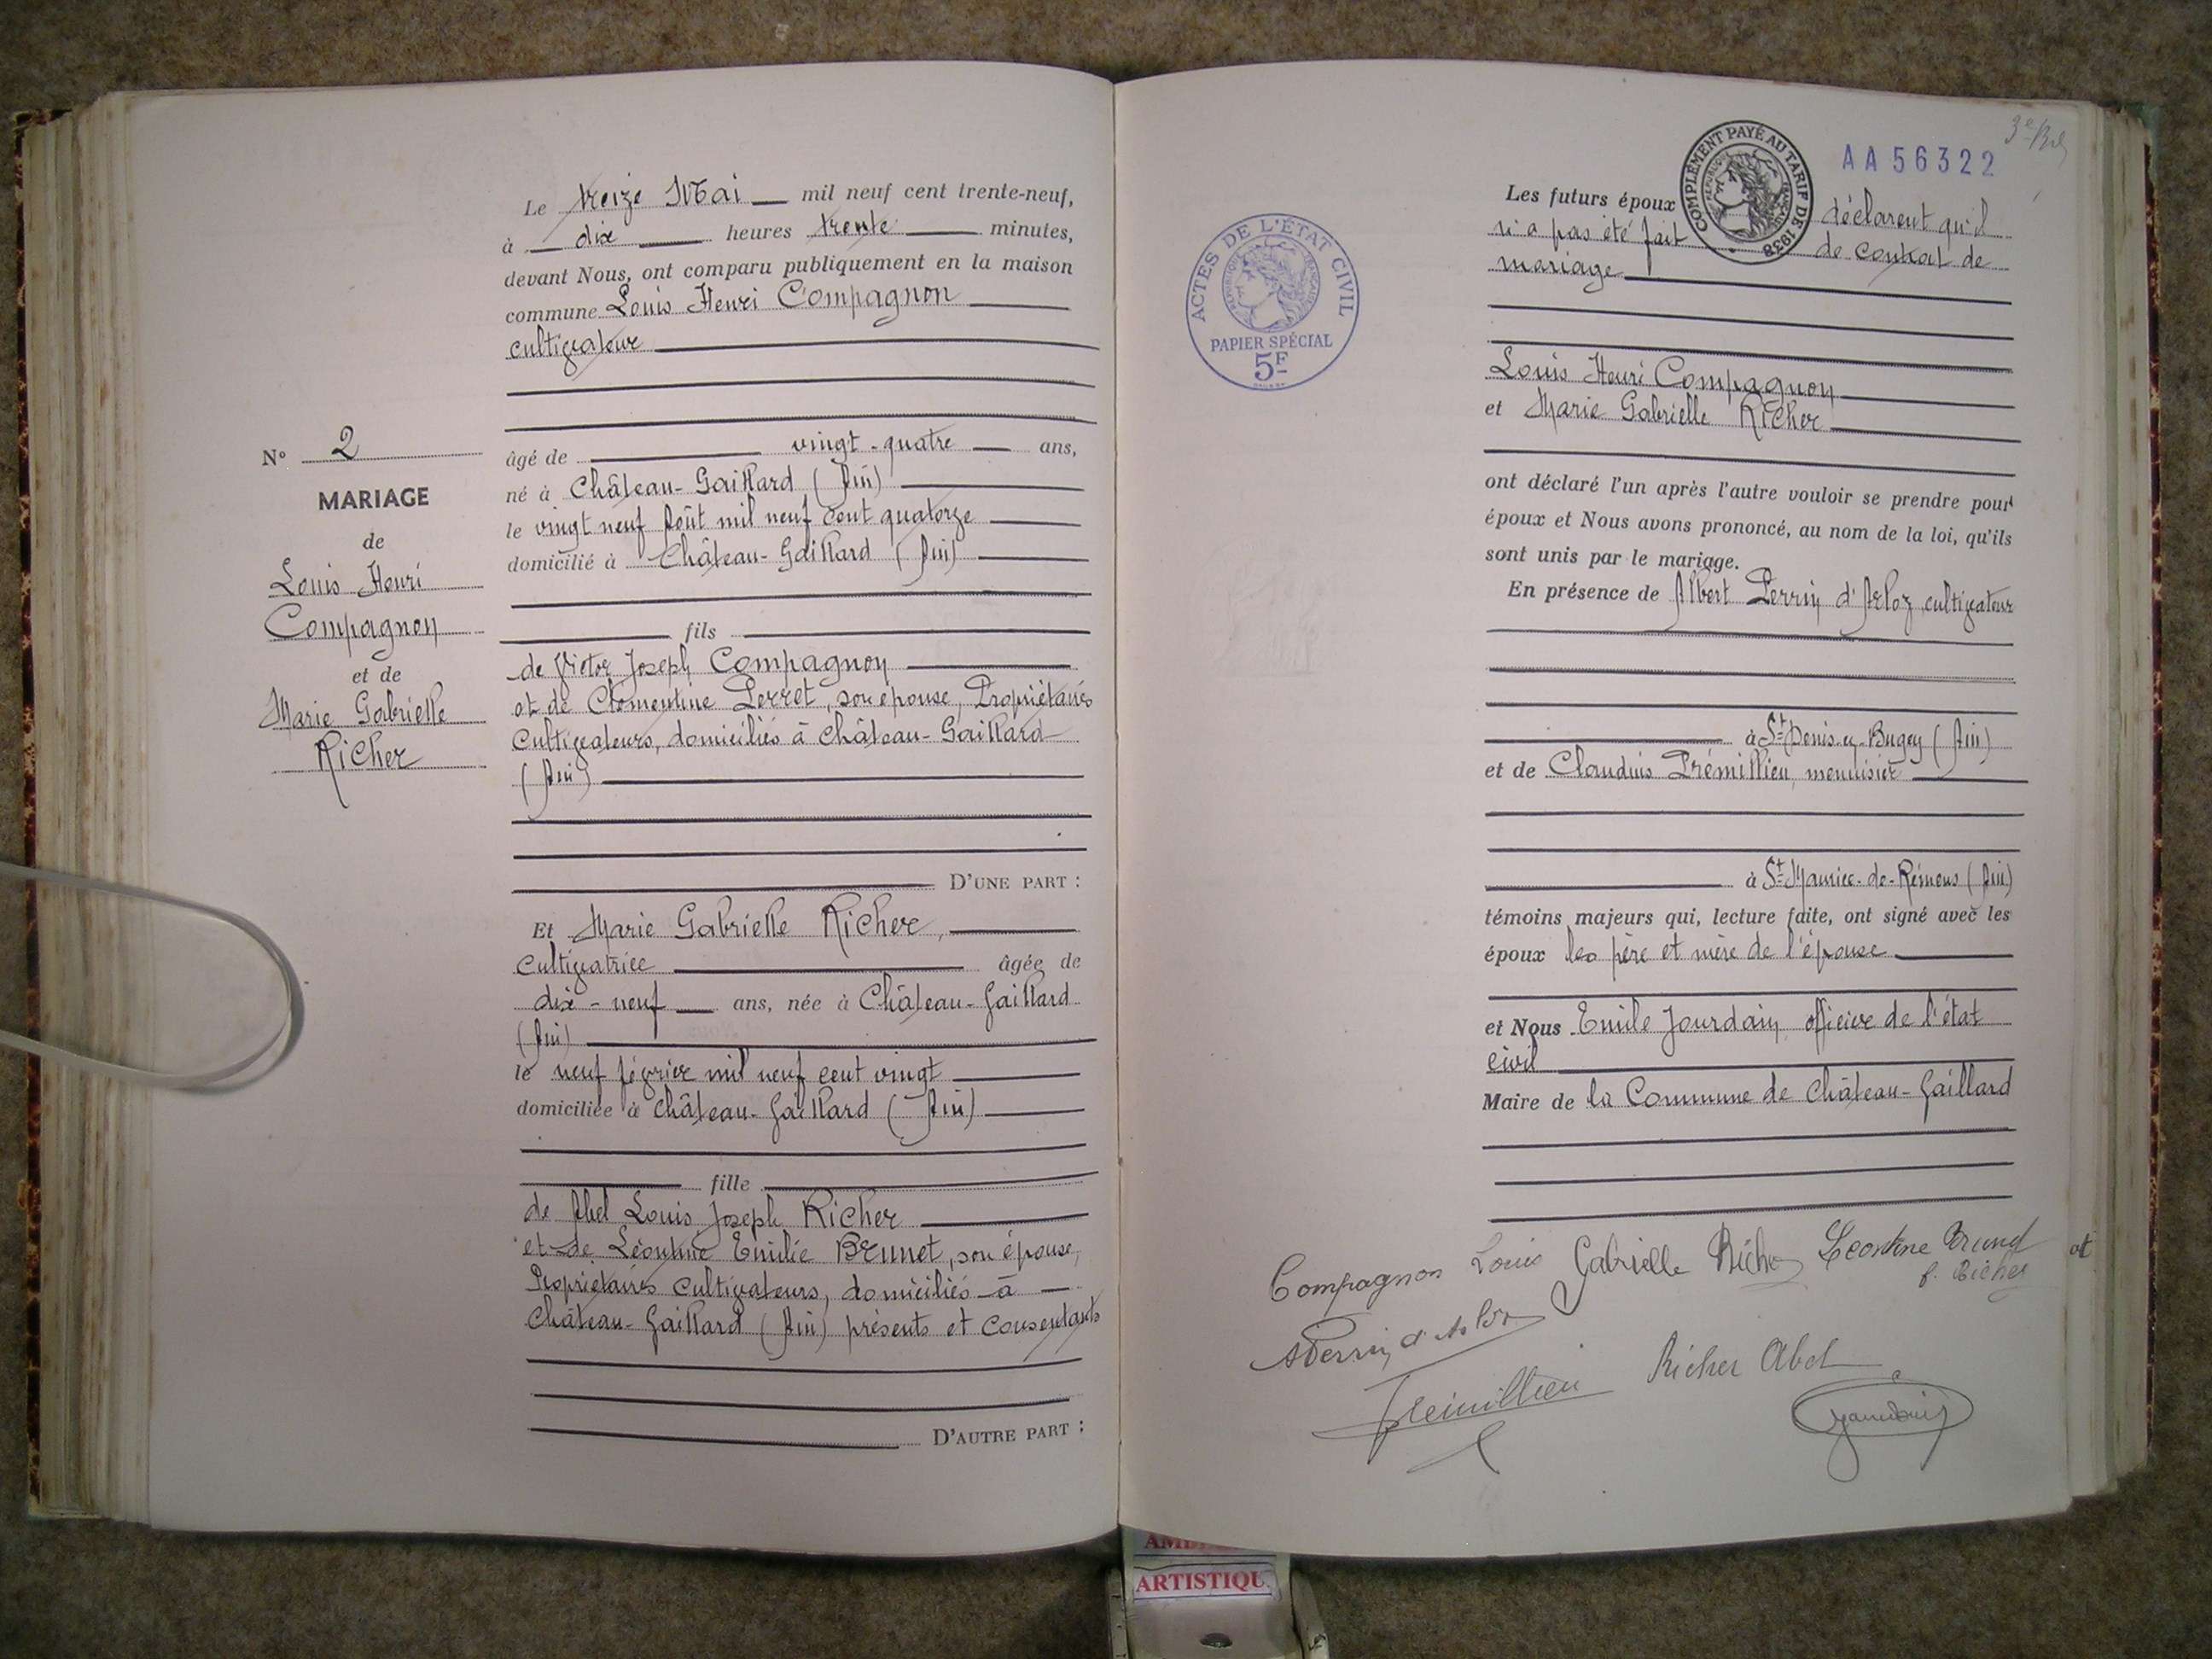 Le treize Mai mil neuf cent trente-neuf,
à dix heures trente minutes,
devant Nous, ont comparu publiquement en la maison
commune Louis Henri Compagnon
cultivateur
N° 2
MARIAGE
de
Louis Henri
Compagnon
et de
Marie Gabrielle
Richer
âgé de vingt-quatre ans,
né à Château-Gaillard (Ain)
le vingt neuf Août mil neuf cent quatorze
domicilié à Château-Gaillard (Ain)
fils
de Victor Joseph Compagnon
et de Clementine Perret, son épouse, Propriétaires
Cultivateurs, domiciliés à Château-Gaillard
(Ain)
D'UNE PART :
Et Marie Gabrielle Richer,
Cultivatrice âgée de
dix-neuf ans, née à Château-Gaillard
(Ain)
le neuf février mil neuf cent vingt
domiciliée à Château-Gaillard (Ain)
fille
de Abel Louis Joseph Richer
et de Léontine Emilie Brunet, son épouse,
Propriétaires Cultivateurs, domiciliés à
Château-Gaillard (Ain) présents et consentants
D'AUTRE PART :
ACTES DE L'ÉTAT CIVIL
RÉPUBLIQUE FRANÇAISE
PAPIER SPÉCIAL
5F
COMPLÉMENT PAYÉ AU TARIF DE 1938
RÉPUBLIQUE FRANÇAISE
AA56322
Les futurs époux déclarent qu'il
n'a pas été fait de contrat de
mariage
Louis Henri Compagnon
et Marie Gabrielle Richer
ont déclaré l'un après l'autre vouloir se prendre pour
époux et Nous avons prononcé, au nom de la loi, qu'ils
sont unis par le mariage.
En présence de Albert Perrin d'Arloz, cultivateur
à St Denis-en-Bugey (Ain)
et de Claudius Prémillieu, menuisier
à St Maurice-de-Rémens (Ain)
témoins majeurs qui, lecture faite, ont signé avec les
époux les père et mère de l'épouse
et Nous Emile Jourdain officier de l'état
civil
Maire de la Commune de Château-Gaillard
Compagnon Louis Gabrielle Richer Leontine Brunet
f. Richer
APerrin d'Arloz
Premillieu Richer Abel
Jourdain
AMB
ARTISTIQU